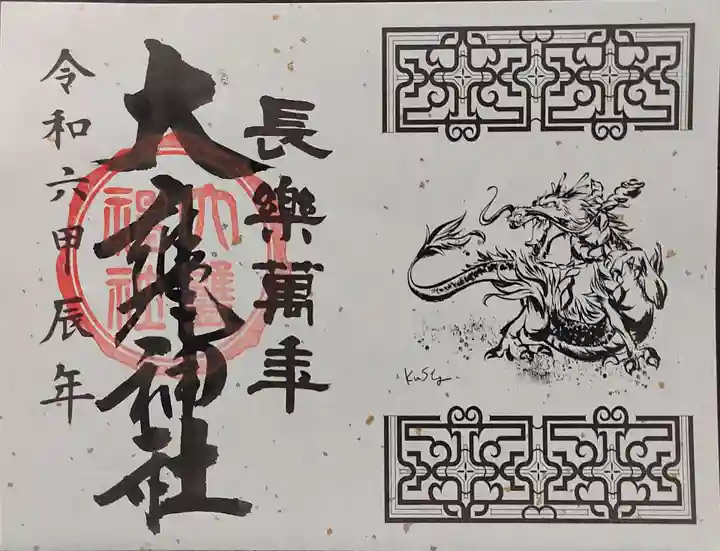 長樂萬年
大甕神社
令和六甲辰年
大甕
神社